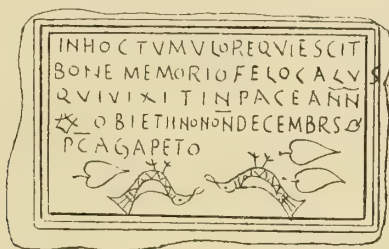 INHOCTVMVLOREQVIESCIT
BONEMEMORIOFELOCALVS
QVIVIXITINPACEANN
OBIETIINONONDECEMBRS
PCAGAPETO